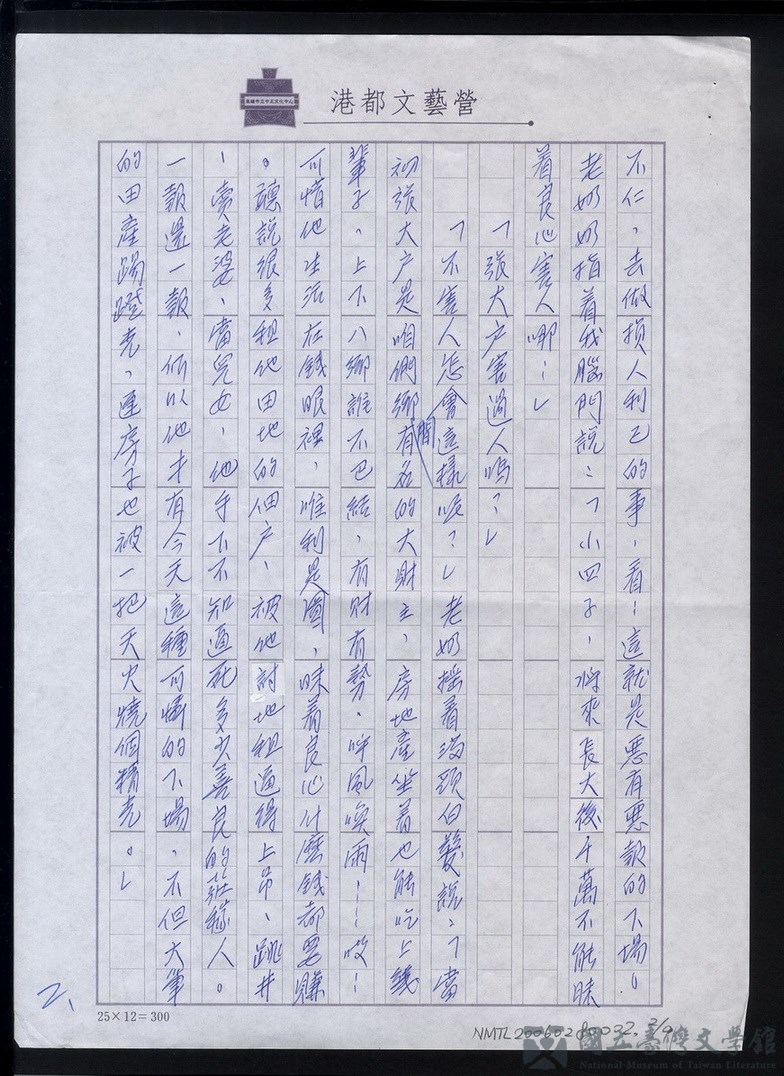 港都文藝營
高雄市立中正文化中心
不仁，去做損人利己的事，看！這就是惡有惡報的下場！」
老奶奶指着我腦門說：「小四子，將來長大後千萬不能昧
着良心害人哪！」
「張大戶害過人嗎？」
「不害人怎會這樣呢？」老奶搖着滿頭白髮說：「當
初張大戶是咱們鄉間有名的大財主，房地產坐着也能吃上幾
輩子，上下八鄉誰不巴結，有財有勢，呼風喚雨……哎！
可惜他生活在錢眼裡，唯利是圖，昧着良心什麼錢都要賺
。聽說很多租他田地的佃戶，被他討地租逼得上吊、跳井
、賣老婆、當兒女，他手下不知逼死多少善良的莊稼人。
一報還一報，所以他才有今天這種可憐的下場，不但大筆
的田產蹋蹬光，連房子也被一把天火燒個精光。」
2、
25×12=300
NMTL20060280032. 2/9
國立臺灣文學館
National Museum of Taiwan Literature